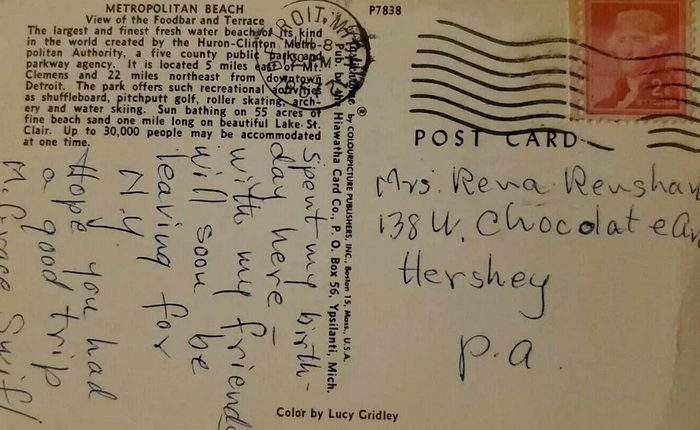 METROPOLITAN BEACH
View of the Foodbar and Terrace
The largest and finest fresh water beach of its kind
in the world created by the Huron-Clinton Metro-
politan Authority, a five county public park and
parkway agency. It is located 5 miles east of Mt.
Clemens and 22 miles northeast from downtown
Detroit. The park offers such recreational activities
as shuffleboard, pitchputt golf, roller skating, arch-
ery and water skiing. Sun bathing on 55 acres of
fine beach sand one mile long on beautiful Lake St.
Clair. Up to 30,000 people may be accommodated
at one time.
Spent my birth-
day here –
with my friend
will soon be
leaving for
N.Y
Hope you had
a good trip
M. Grace Swif
by COLOURPICTURE PUBLISHERS, INC., Boston 15, Mass., U.S.A.
Pub. by Hiawatha Card Co., P. O. Box 56, Ypsilanti, Mich.
P7838
DETROIT, MICH
2¢
POST CARD
Mrs. Rena Renshaw
138 W. Chocolate Av
Hershey
P.a.
Color by Lucy Gridley